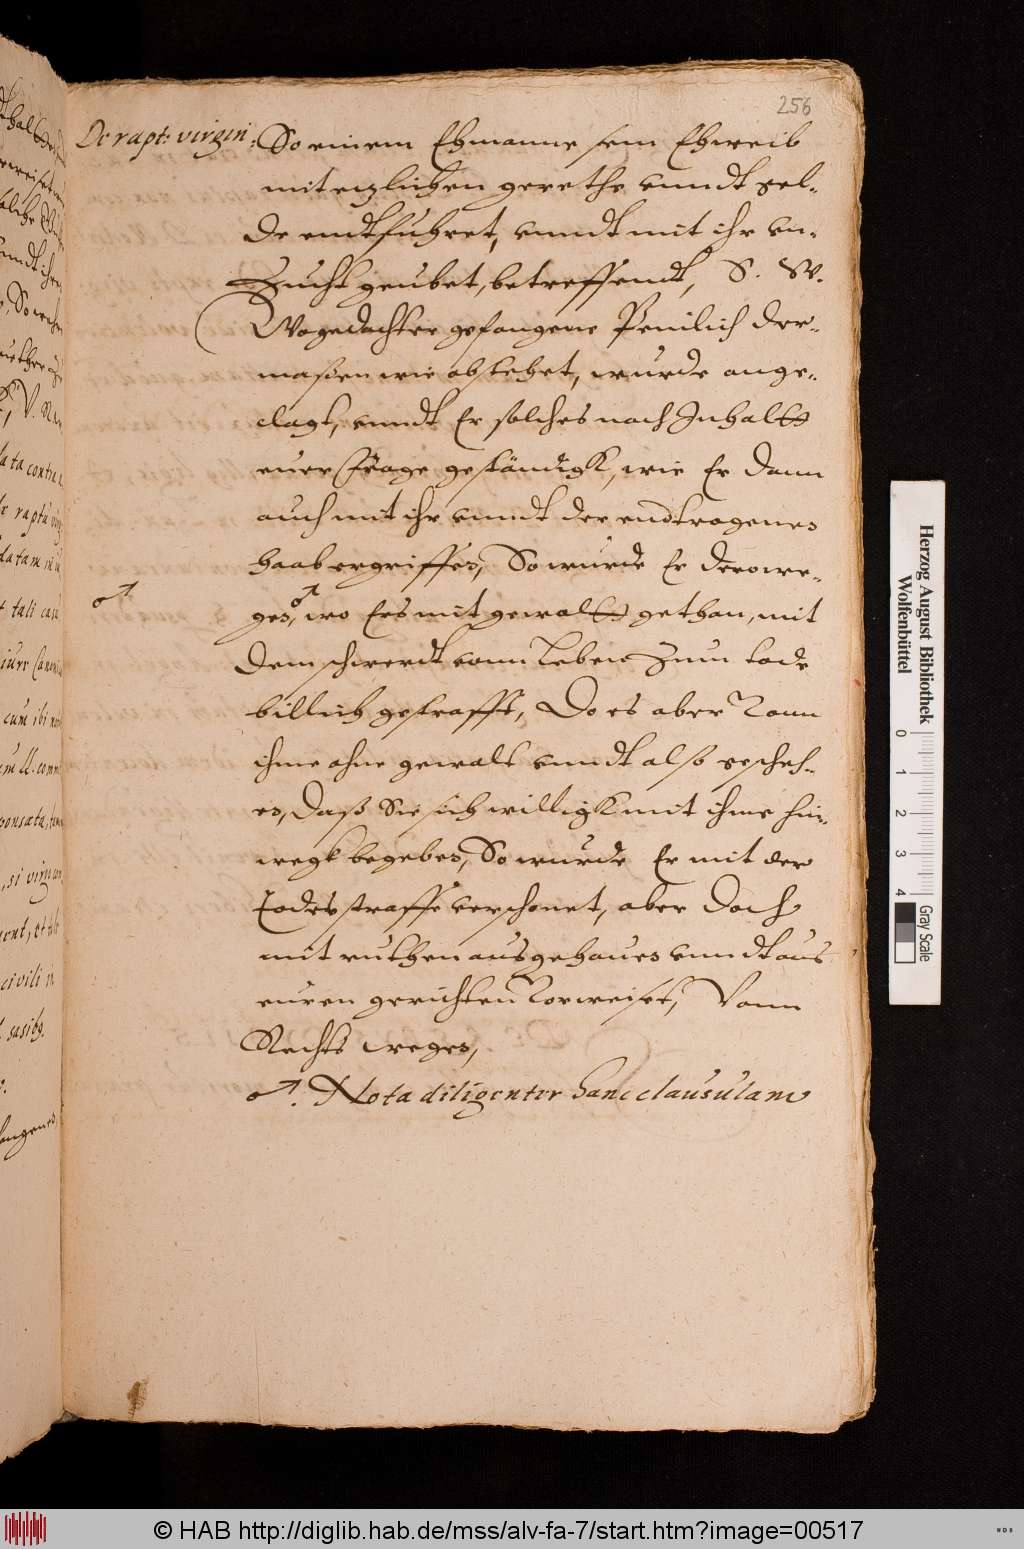 256
De rapt: virgin:
So einem Ehmanne sein Ehweib
mit etzlichen gerethe vnndt gel-
de endtfuhret, vnndt mit ihr vn-
Zucht geubet, betreffendt, S. W.
Wogedachter gefangene Peinlich der-
maßen wie obstehet, wurde ange-
clagt, vnndt Er solches nach Inhaltt
euer frage geständigk, wie Er dann
auch mit ihr vnndt der endtragenen
haab ergriffen, So wurde Er derowe-
gen, ♂ wo Er es mit gewaltt gethan, mit
♂
dem schwerdt vom leben Zum tode
billich gestrafft, Do es aber von
ihme ohne gewalt vnndt also gescheh-
en, Daß Sie sich willigk mit ihme hin-
wegk begeben, So wurde Er mit der
Todesstraffe verschonet, aber doch
mit ruthen ausgehauen vnndt aus
euren gerichten vorweiset, Vonn
Rechts wegen,
♂. Nota diligenter hanc clausulam
Herzog August Bibliothek
Wolfenbüttel
0 1 2 3 4
Gray Scale
© HAB http://diglib.hab.de/mss/alv-fa-7/start.htm?image=00517